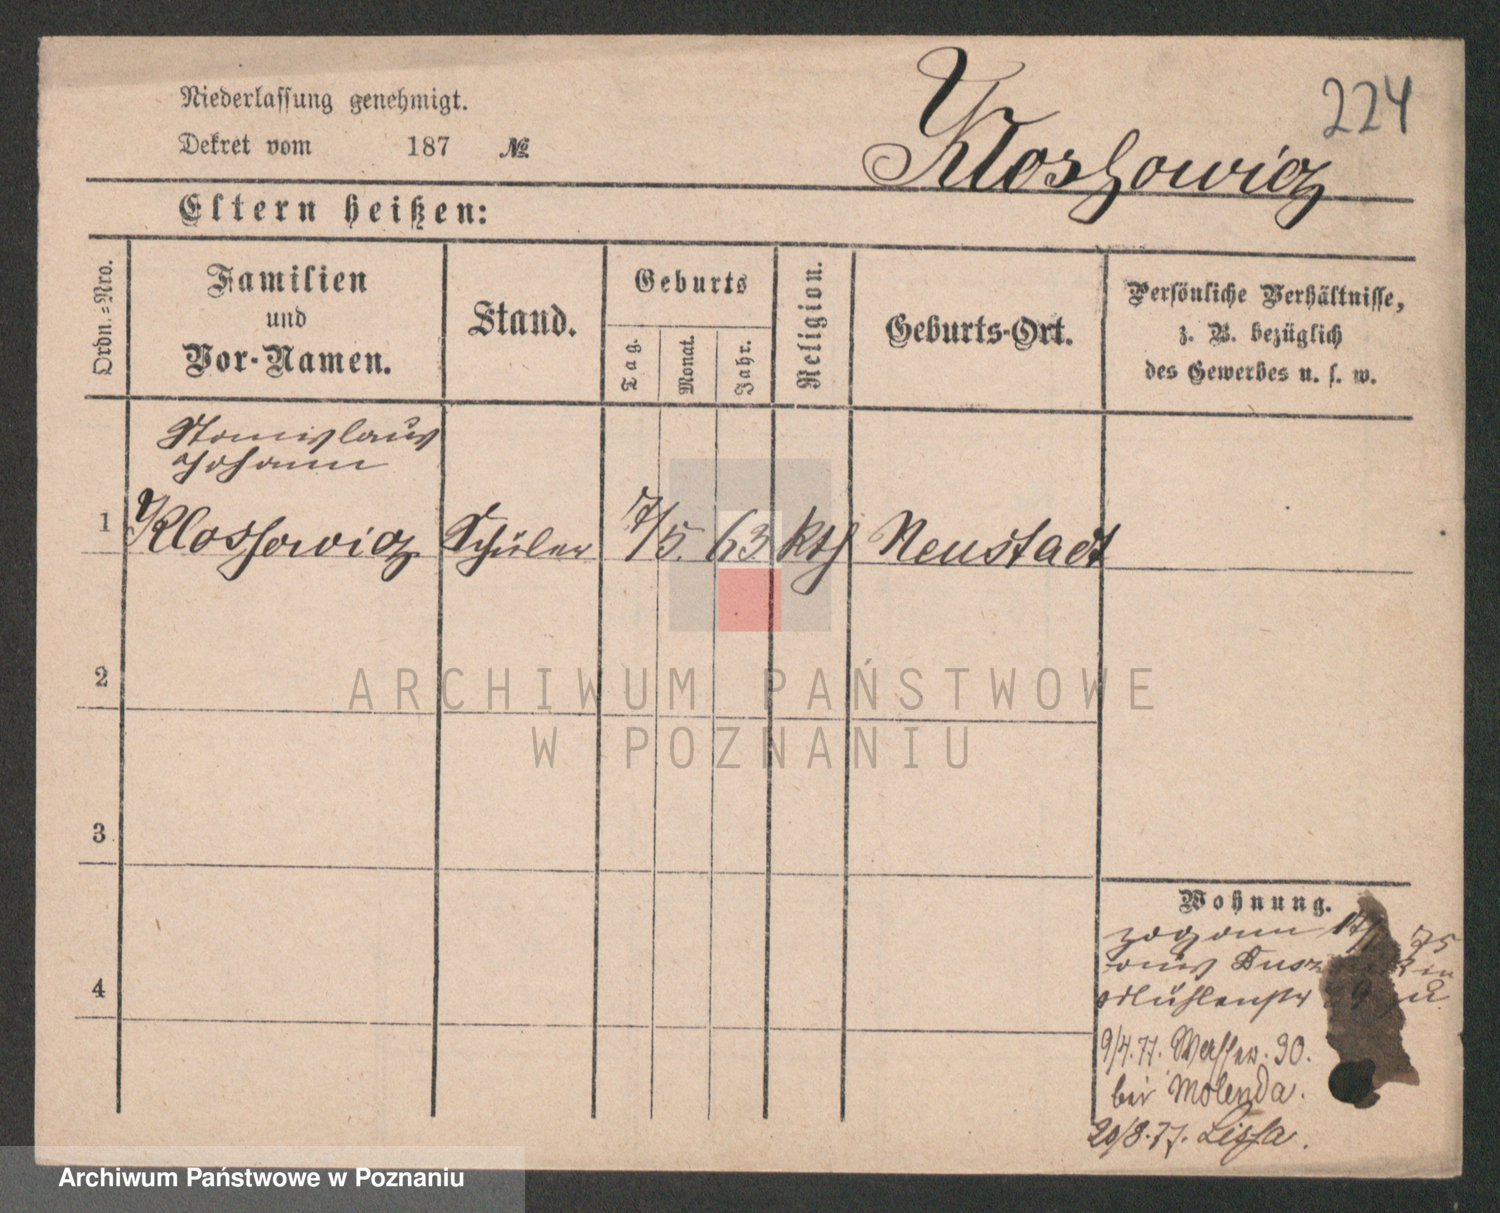 224
Niederlassung genehmigt.
Dekret vom 187 №
Klossowicz
Eltern heißen:
Ordn.=Nro.
Familien
und
Vor-Namen.
Stand.
Geburts
Tag.
Monat.
Jahr.
Religion.
Geburts-Ort.
Persönliche Verhältnisse,
z. B. bezüglich
des Gewerbes u. s. w.
Stanislaus
Johann
1 Klossowicz Schüler 7/5. 63 kth Neustadt
2
3
4
Wohnung.
zog am 17/ 75
aus in
Mühlenstr zu
9/4.77. Wasser. 30.
bei Molenda.
20/8.77. Lissa.
ARCHIWUM PAŃSTWOWE
W POZNANIU
Archiwum Państwowe w Poznaniu